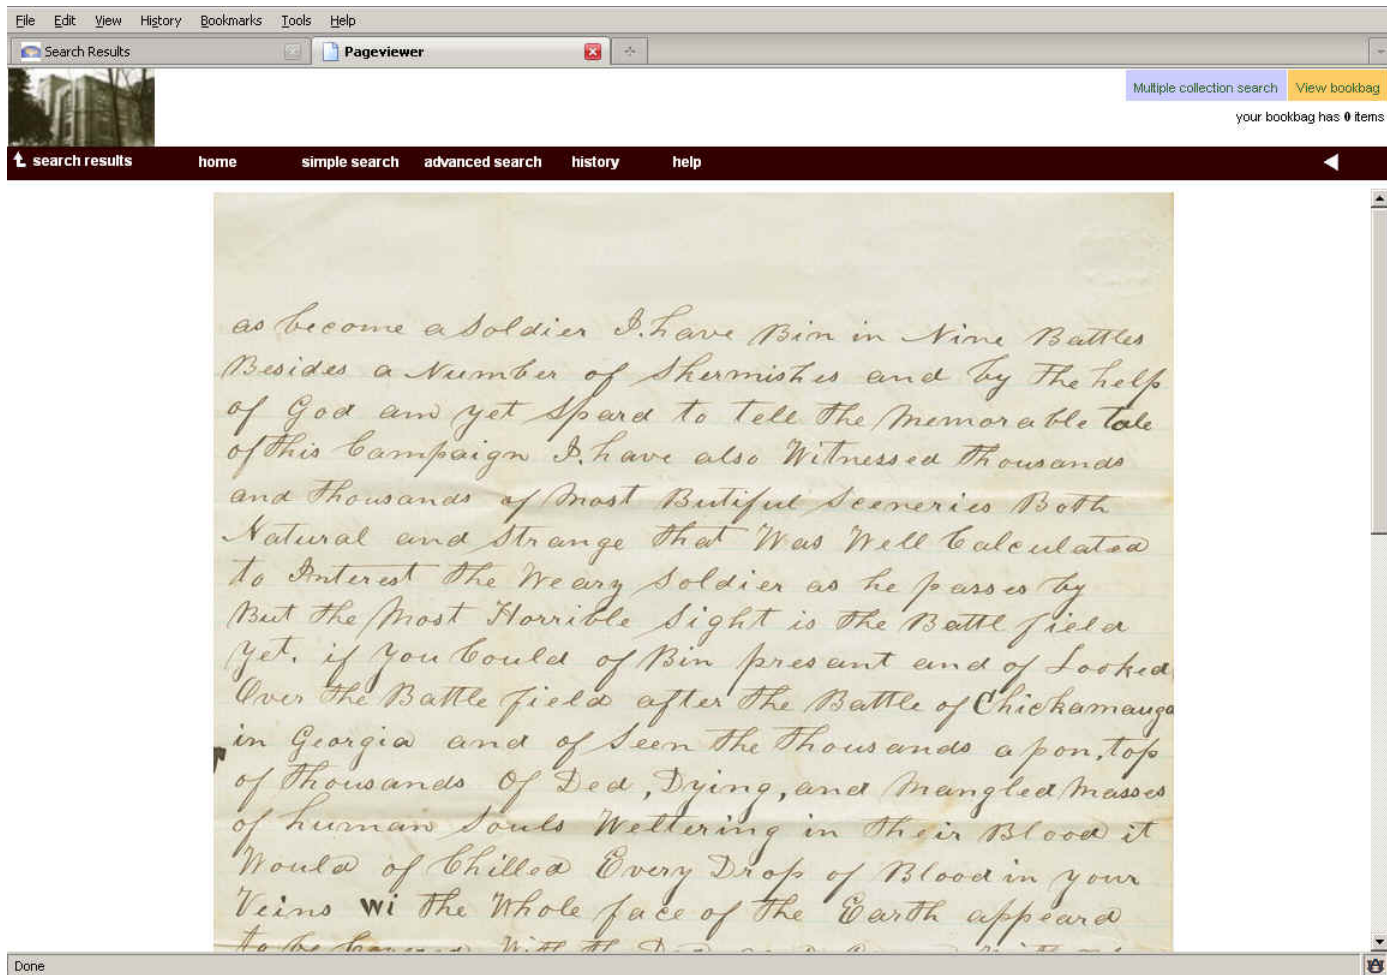 File Edit View History Bookmarks Tools Help
Search Results Pageviewer
Multiple collection search View bookbag
your bookbag has 0 items
search results home simple search advanced search history help
as become a Soldier I. have Bin in Nine Battles
Besides a Number of Skermishes and by the help
of God am yet Spard to tell the Memorable tale
of this Campaign I. have also Witnessed thousands
and thousands of Most Butiful Sceneries Both
Natural and Strange that Was Well Calculated
to Interest the Weary Soldier as he passes by
But the Most Horrible Sight is the Battl field
yet. if you Could of Bin presant and of Looked
Over the Battle field after the Battle of Chickamauga
in Georgia and of Seen the thousands apon, top
of thousands Of Ded, Dying, and Mangled Masses
of human Souls Weltering in their Blood it
Would of Chilled Every Drop of Blood in your
Veins wi the Whole face of the Earth appeard
to be With
Done